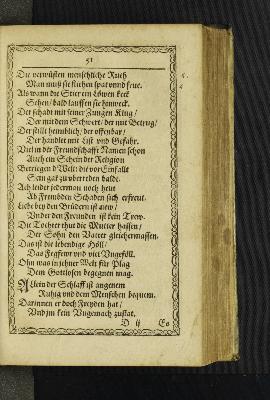 51
Die verwüsten menschliche Rueh
Man muß sie fliehen spat vnnd frue.
Als wann die Stier ein Löwen keck
Sehen / bald lauffen sie hinweck.
Der schadt mit seiner Zungen Kling /
Der mit dem Schwert / der mit Betrug /
Der still heimblich / der offenbar /
Der handlet mit List vnd Gefahr.
Viel in der Freundschafft Namen schon
Auch ein Schein der Religion
Betriegen d'Welt: die vor Einfalt
Seyn gar zu vberreden baldt.
Ach leider jederman noch heut
Ab Frembden Schaden sich erfreut.
Liebe bey den Brüdern ist new /
Vnd
der den Freunden ist kein Trew.
Die Tochter thut die Mutter hassen /
Der Sohn den Vatter gleichermassen.
Das ist die lebendige Höll /
Das Fegfewr vnd viel Vngeföll.
Ohn was in jehner Welt für Plag
Dem Gottlosen begegnen mag.
Allein der Schlaff ist angenem
Ruhig vnd dem Menschen bequem.
Dar innen er doch Freyden hat /
Vnd jm kein Vngemach zustat.
D ij Es